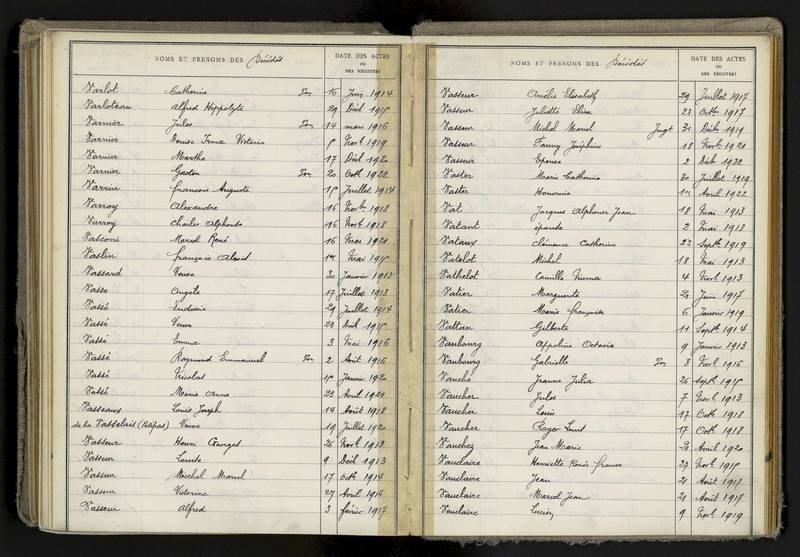 NOMS ET PRENOMS DES Décédés
DATE DES ACTES
OU
DES REGISTRES
Varlot Catherine 16 Juin 1914
Varloteau Alfred Hippolyte 29 Déc 1915
Varnier Jules 14 mars 1916
Varnier Denise Irma Victoria Nov 1919
Varnier Marthe 17 Déc 1920
Varnier Gaston 20 Oct 1922
Varrin François Auguste Juillet 1914
Varroy Alexandre 16 Nov 1918
Varroy Charles Alphonse 16 Nov 1918
Vasconi Marcel René 16 Mai 1920
Vaslin François Alexis Mai 1915
Vassard Veuve 30 Janvier 1913
Vasse Angèle 17 Juillet 1913
Vassé Ludovic 29 Juillet 1914
Vassé Veuve 23 Déc 1915
Vassé Emma 3 Mai 1916
Vassé Raymond Emmanuel 2 Août 1916
Vassé Nicolas Janvier 1920
Vassé Marie Anne 23 Avril 1920
Vasseaux Louis Joseph 14 Août 1918
de la Vasselais (Potiças) Veuve 19 Juillet 1920
Vasseur Henri Georges 26 Nov 1913
Vasseur Louise 9 Déc 1913
Vasseur Michel Marcel 17 Oct 1914
Vasseur Victorine 27 Avril 1916
Vasseur Alfred 3 février 1917
NOMS ET PRENOMS DES Décédés
DATE DES ACTES
OU
DES REGISTRES
Vasseur Amélie Elisabeth 29 Juillet 1917
Vasseur Juliette Elisa 23 Oct 1917
Vasseur Michel Marcel Jugt 31 Déc 1919
Vasseur Fanny Joséphine 18 Nov 1920
Vasseur Epouse 2 Déc 1922
Vaster Marie Catherine 30 Juillet 1919
Vaster Honorine 1er Avril 1922
Vat Jacques Alphonse Jean 18 Mai 1913
Vatant épouse 2 Mai 1913
Vataux Clémence Catherine 22 Sept 1919
Vatelot Michel 18 Mai 1913
Vathelot Camille Numa 4 Nov 1913
Vatier Marguerite Juin 1917
Vatier Marie Françoise 6 Janvier 1919
Vattan Gilberte 11 Sept 1914
Vaubourg Appoline Octavie 9 Janvier 1913
Vaubourg Gabrielle 8 Nov 1916
Vauche Jeanne Julia 26 Sept 1915
Vaucher Jules 7 Nov 1913
Vaucher Louis 17 Oct 1918
Vaucher Roger Louis 17 Oct 1918
Vauchez Jean Marie Avril 1920
Vauclaire Henriette Renée France 23 Nov 1915
Vauclaire Jean 21 Août 1917
Vauclaire Marcel Jean 21 Août 1917
Vauclaire Lucien 9 Nov 1919